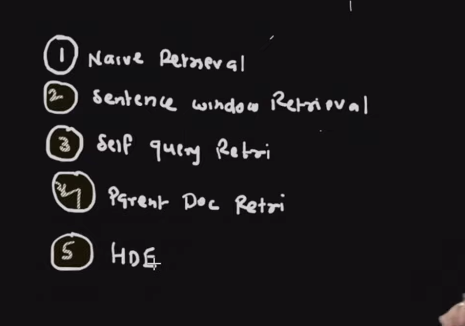 1 Naive Retrieval
2 Sentence window Retrieval
3 Self query Retri
4 Parent Doc Retri
5 HDE